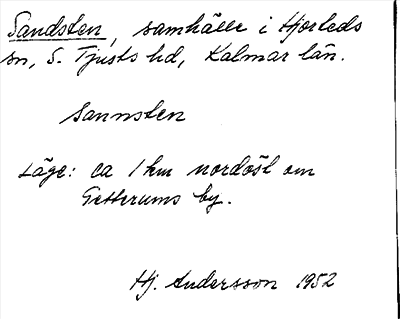 Sandsten, samhälle i Hjorteds
sn, S. Tjusts hd, Kalmar län.
sannsten
Läge: ca 1 km nordöst om
Getterums by.
Hj. Andersson 1952